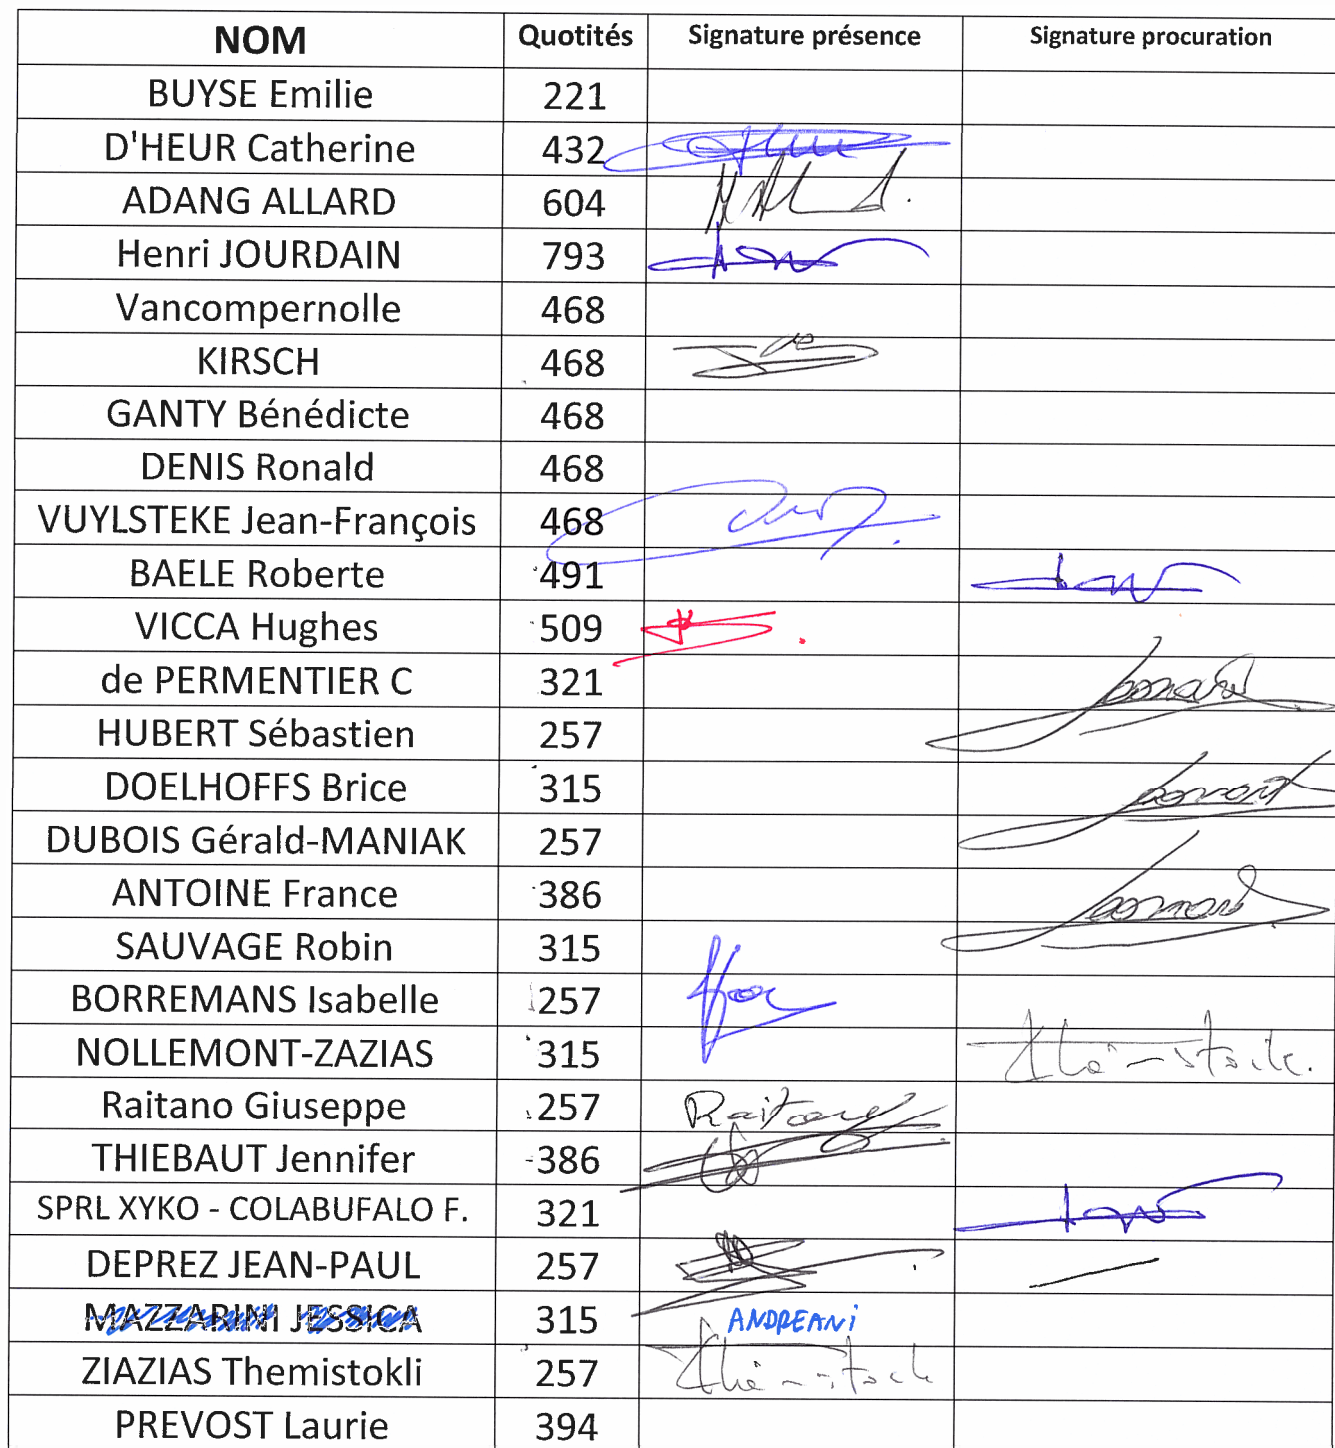 NOM Quotités Signature présence Signature procuration
BUYSE Emilie 221
D'HEUR Catherine 432
ADANG ALLARD 604
Henri JOURDAIN 793
Vancompernolle 468
KIRSCH 468
GANTY Bénédicte 468
DENIS Ronald 468
VUYLSTEKE Jean-François 468
BAELE Roberte 491
VICCA Hughes 509
de PERMENTIER C 321
HUBERT Sébastien 257
DOELHOFFS Brice 315
DUBOIS Gérald-MANIAK 257
ANTOINE France 386
SAUVAGE Robin 315
BORREMANS Isabelle 257
NOLLEMONT-ZAZIAS 315
Raitano Giuseppe 257 Raitano
THIEBAUT Jennifer 386
SPRL XYKO - COLABUFALO F. 321
DEPREZ JEAN-PAUL 257
MAZZARINI JESSICA 315 ANDREANi
ZIAZIAS Themistokli 257
PREVOST Laurie 394